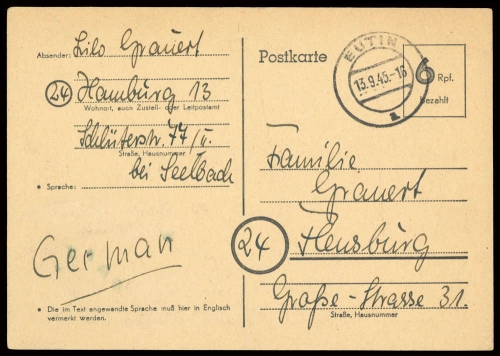 Absender: Lilo Grauert
24 Hamburg 13
Wohnort, auch Zustell- oder Leitpostamt
Schlüterstr. 77/II.
Straße, Hausnummer
bei Seelbach
• Sprache:
German
• Die im Text angewandte Sprache muß hier in Englisch
vermerkt werden.
Postkarte
EUTIN
13.9.45.-16
a
6 Rpf.
Bezahlt
Familie
Grauert
24 Flensburg
Große-Strasse 31.
Straße, Hausnummer